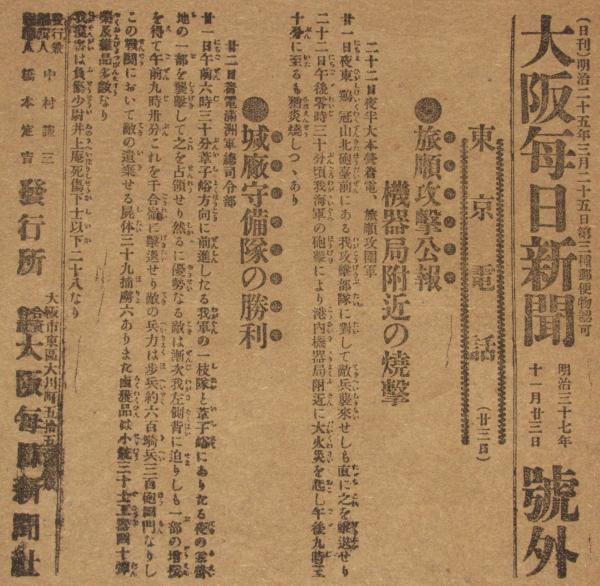 (日刊)明治二十五年三月二十五日第三種郵便物認可
大阪毎日新聞
明治三十七年
十一月廿三日
號外
東京電話
(廿三日)
●旅順攻擊公報
機器局附近の燒擊
二十二日夜半大本營着電、旅順攻圍軍
廿一日夜東鷄冠山北砲臺前にある我攻擊部隊に對して敵兵襲來せしも直に之を擊退せり
二十二日午後零時三十分頃我海軍の砲擊により港內機器局附近に大火災を起し午後九時三
十分に至るも猶炎燒しつゝあり
●城廠守備隊の勝利
廿二日着電滿洲軍總司令部
廿一日午前六時三十分葦子峪方向に前進したる我軍の一枝隊と葦子峪にありたる
地の一部を襲擊して之を占領せり然るに優勢なる敵は漸次我左側背に迫りしも一部の增援
を得て午前九時卅分これを千合嶺に擊潰せり敵の兵力は步兵約六百騎兵三百砲四門なりし
この戰鬪において敵の遺棄せる屍体三十九捕虜六ありまた鹵獲品は小銃三十
藥及雜品多數なり
我損害は負傷少尉井上庵死傷下士以下二十八なり
中村
橋本定吉
發行所
大阪市東區大川町五拾五
大阪每日新聞社